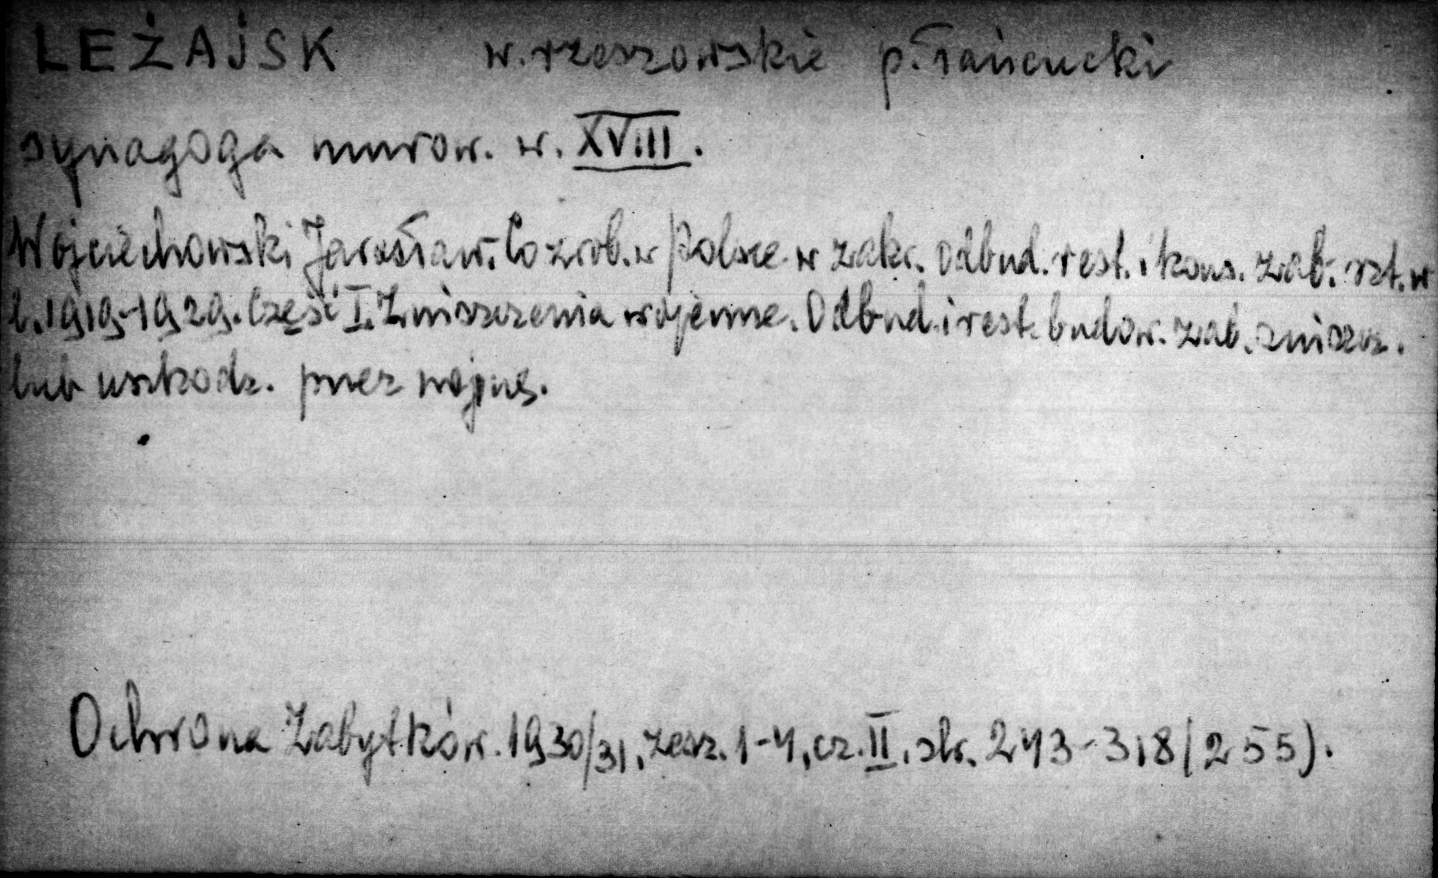 LEŻAJSK w. rzeszowskie p. łańcucki
synagoga murow. w. XVIII.
Wojciechowski Jarosław. Co zrob. w Polsce w zakr. odbud. rest. i kons. zab. szt. w
l. 1919-1929. Część I. Zniszczenia wojenne. Odbud. i rest. budow. zab. zniszcz.
lub uszkodz. przez wojnę.
Ochrona Zabytków. 1930/31, zesz. 1-4, cz. II, str. 243-318 (255).